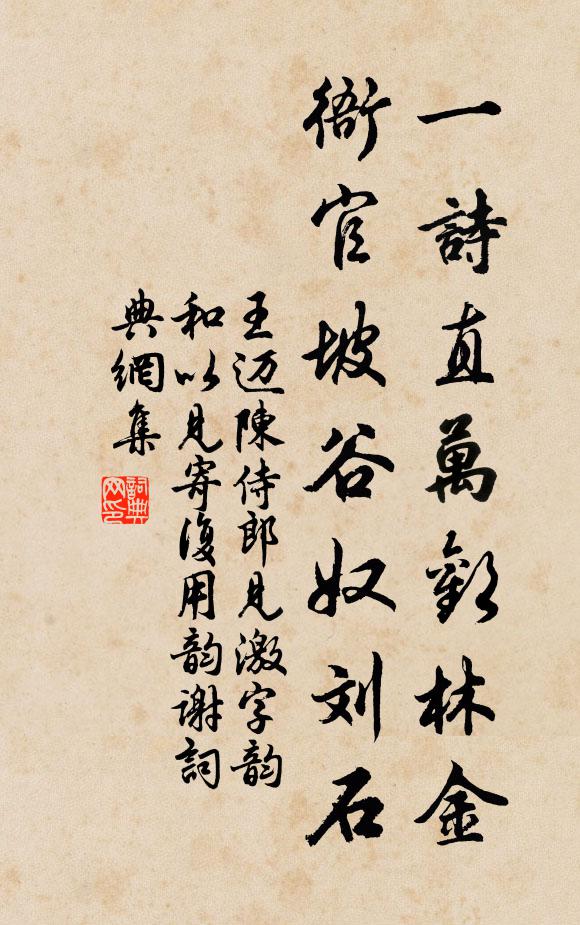 一詩直萬雞林金
衙官坡谷奴刘石
王迈陳侍郎見激字韵
和以見寄復用韵謝詞
典網集
詞典
网印